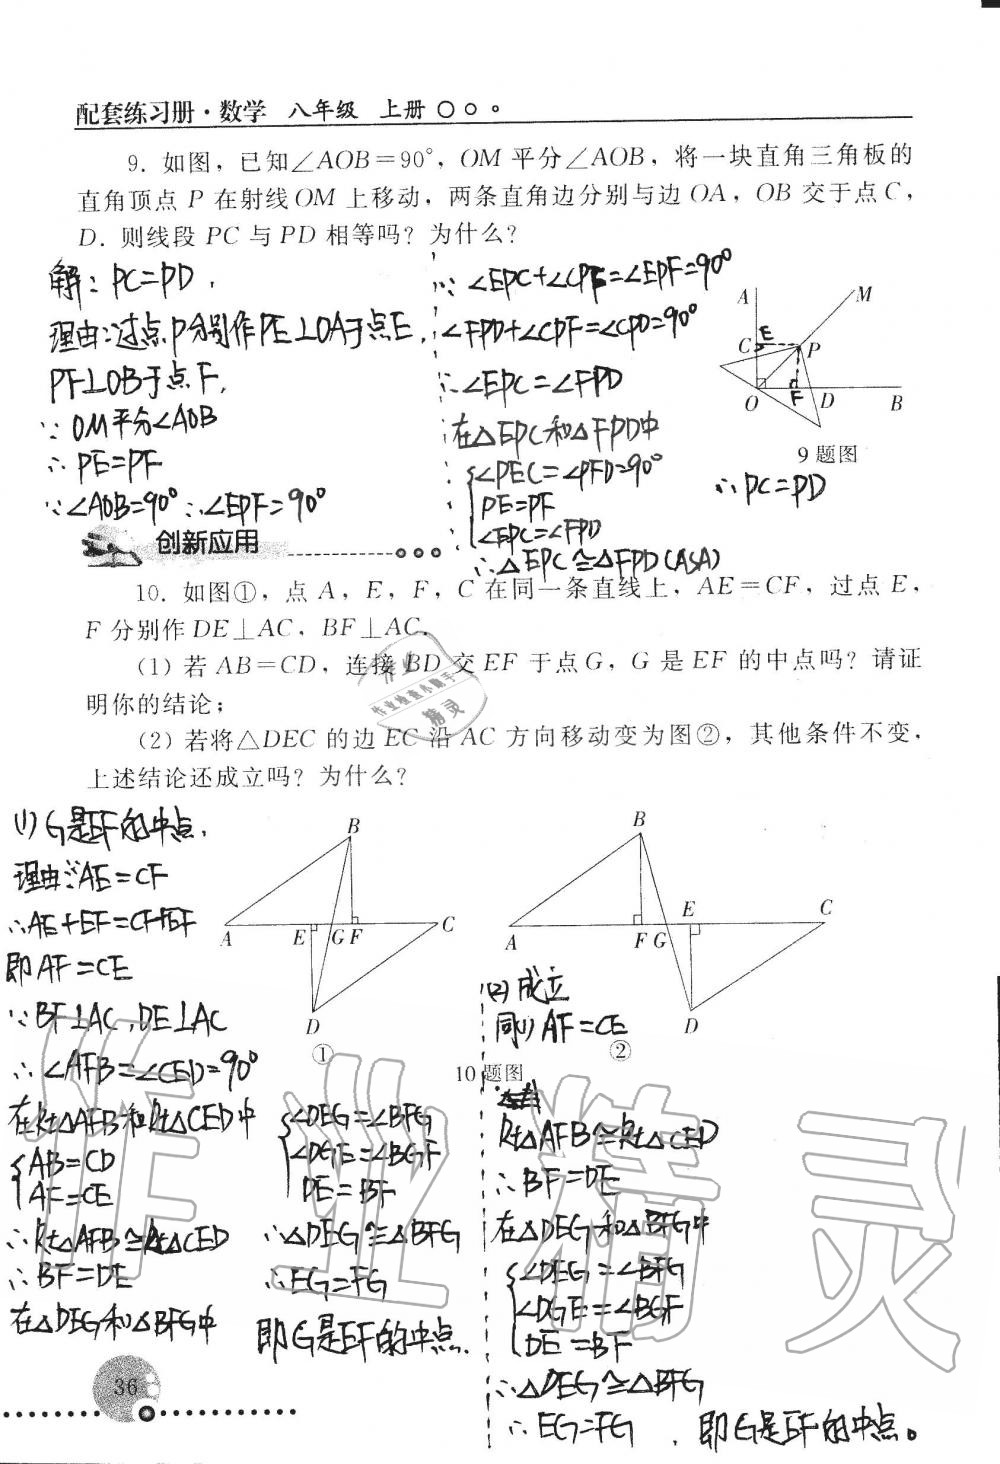 配套练习册·数学 八年级 上册
9. 如图，已知∠AOB=90°，OM 平分∠AOB，将一块直角三角板的
直角顶点 P 在射线 OM 上移动，两条直角边分别与边 OA，OB 交于点 C，
D. 则线段 PC 与 PD 相等吗？为什么？
解：PC=PD，
理由：过点P分别作PE⊥OA于点E，
PF⊥OB于点F，
∵OM平分∠AOB
∴PE=PF
∵∠AOB=90° ∴∠EPF=90°
∵∠EPC+∠CPF=∠EPF=90°
∠FPD+∠CPF=∠CPD=90°
∴∠EPC=∠FPD
在△EPC和△FPD中
∠PEC=∠PFD=90°
PE=PF
∠EPC=∠FPD
∴△EPC≌△FPD(ASA)
A
M
C
E
P
O
F
D
B
9题图
∴PC=PD
创新应用
10. 如图①，点 A，E，F，C 在同一条直线上，AE=CF，过点 E，
F 分别作 DE⊥AC，BF⊥AC.
（1）若 AB=CD，连接 BD 交 EF 于点 G，G 是 EF 的中点吗？请证
明你的结论；
（2）若将△DEC 的边 EC 沿 AC 方向移动变为图②，其他条件不变，
上述结论还成立吗？为什么？
作业检查小助手
精灵
(1)G是EF的中点，
理由：∵AE=CF
∴AE+EF=CF+EF
即AF=CE
∵BF⊥AC，DE⊥AC
∴∠AFB=∠CED=90°
在Rt△AFB和Rt△CED中
AB=CD
AF=CE
∴Rt△AFB≌Rt△CED
∴BF=DE
在△DEG和△BFG中
B
A
E
G
F
C
D
①
B
A
F
G
E
C
D
②
10题图
∠DEG=∠BFG
∠DGE=∠BGF
DE=BF
∴△DEG≌△BFG
∴EG=FG
即G是EF的中点.
(2)成立
同(1)AF=CE
Rt△AFB≌Rt△CED
∴BF=DE
在△DEG和△BFG中
∠DEG=∠BFG
∠DGE=∠BGF
DE=BF
∴△DEG≌△BFG
∴EG=FG，即G是EF的中点。
作业精灵
36